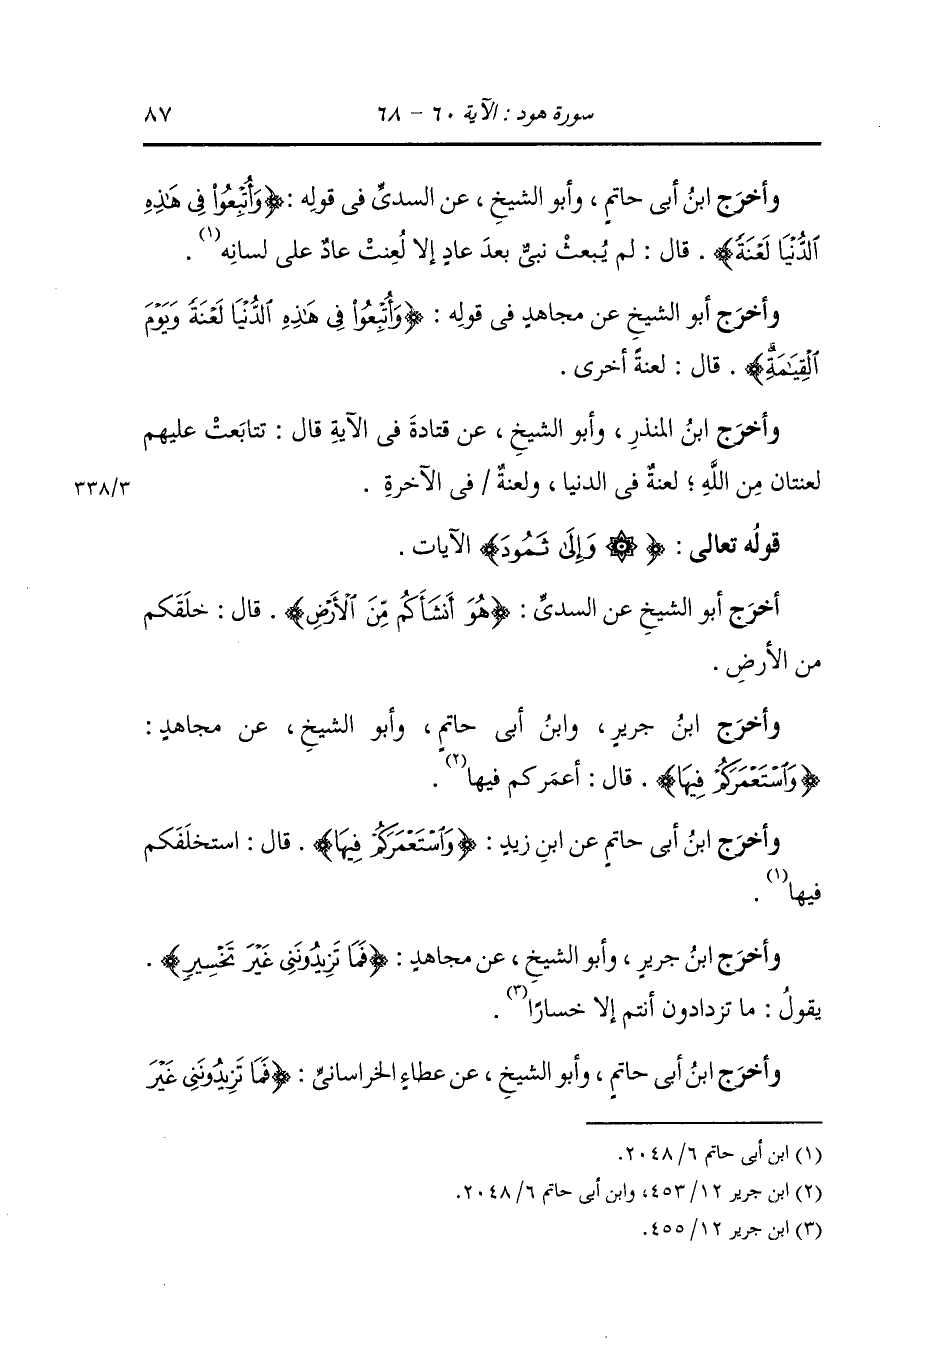 سورة هود : الآية ٦٠ - ٦٨ ٨٧
وأخرَج ابنُ أبى حاتمٍ ، وأبو الشيخِ ، عن السدىِّ فى قولِه : ﴿وَأُتْبِعُوا۟ فِى هَٰذِهِ
ٱلدُّنْيَا لَعْنَةً﴾ . قال : لم يُبعثْ نبىٌّ بعدَ عادٍ إلا لُعِنتْ عادٌ على لسانِه(١) .
وأخرَج أبو الشيخِ عن مجاهدٍ فى قولِه : ﴿وَأُتْبِعُوا۟ فِى هَٰذِهِ ٱلدُّنْيَا لَعْنَةً وَيَوْمَ
ٱلْقِيَٰمَةِۗ﴾ . قال : لعنةً أخرى .
وأخرَج ابنُ المنذرِ ، وأبو الشيخِ ، عن قتادةَ فى الآيةِ قال : تتابَعتْ عليهم
لعنتان مِن اللَّهِ ؛ لعنةٌ فى الدنيا ، ولعنةٌ / فى الآخرةِ . ٣٣٨/٣
قولُه تعالى : ﴿ ۞ وَإِلَىٰ ثَمُودَ﴾ الآيات .
أخرَج أبو الشيخِ عن السدىِّ : ﴿هُوَ أَنشَأَكُم مِّنَ ٱلْأَرْضِ﴾ . قال : خلَقَكم
من الأرضِ .
وأخرَج ابنُ جريرٍ ، وابنُ أبى حاتمٍ ، وأبو الشيخِ ، عن مجاهدٍ :
﴿وَٱسْتَعْمَرَكُمْ فِيهَا﴾ . قال : أعمَركم فيها(٢) .
وأخرَج ابنُ أبى حاتمٍ عن ابنِ زيدٍ : ﴿وَٱسْتَعْمَرَكُمْ فِيهَا﴾ . قال : استخلَفَكم
فيها(١) .
وأخرَج ابنُ جريرٍ ، وأبو الشيخِ ، عن مجاهدٍ : ﴿فَمَا تَزِيدُونَنِى غَيْرَ تَخْسِيرٍ﴾ .
يقولُ : ما تزدادون أنتم إلا خسارًا(٣) .
وأخرَج ابنُ أبى حاتمٍ ، وأبو الشيخِ ، عن عطاءٍ الخراسانىِّ : ﴿فَمَا تَزِيدُونَنِى غَيْرَ
(١) ابن أبى حاتم ٦/ ٢٠٤٨.
(٢) ابن جرير ١٢/ ٤٥٣، وابن أبى حاتم ٦/ ٢٠٤٨.
(٣) ابن جرير ١٢/ ٤٥٥.